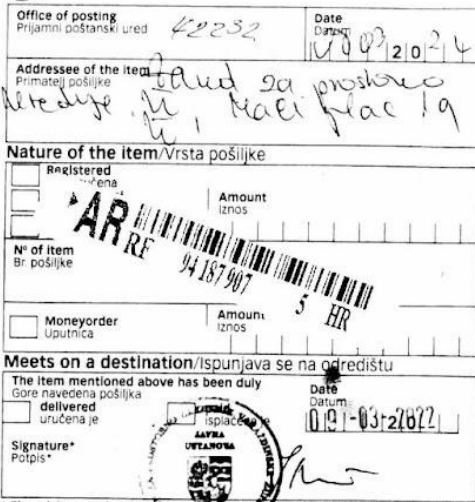 Office of posting
Prijamni poštanski ured
42232
Date
Datum
2 0 2 4
Addressee of the item
Primatelj pošiljke
Zavod za prostorno
Mali plac 1a
Nature of the item/Vrsta pošiljke
Registered
Amount
Iznos
AR
RF 94 187 907 5 HR
Nº of item
Br. pošiljke
Moneyorder
Uputnica
Amount
Iznos
Meets on a destination/Ispunjava se na odredištu
The item mentioned above has been duly
Gore navedena pošiljka
delivered
uručena je
Date
Datum
-03-2022
Signature*
Potpis*
JAVNA
USTANOVA